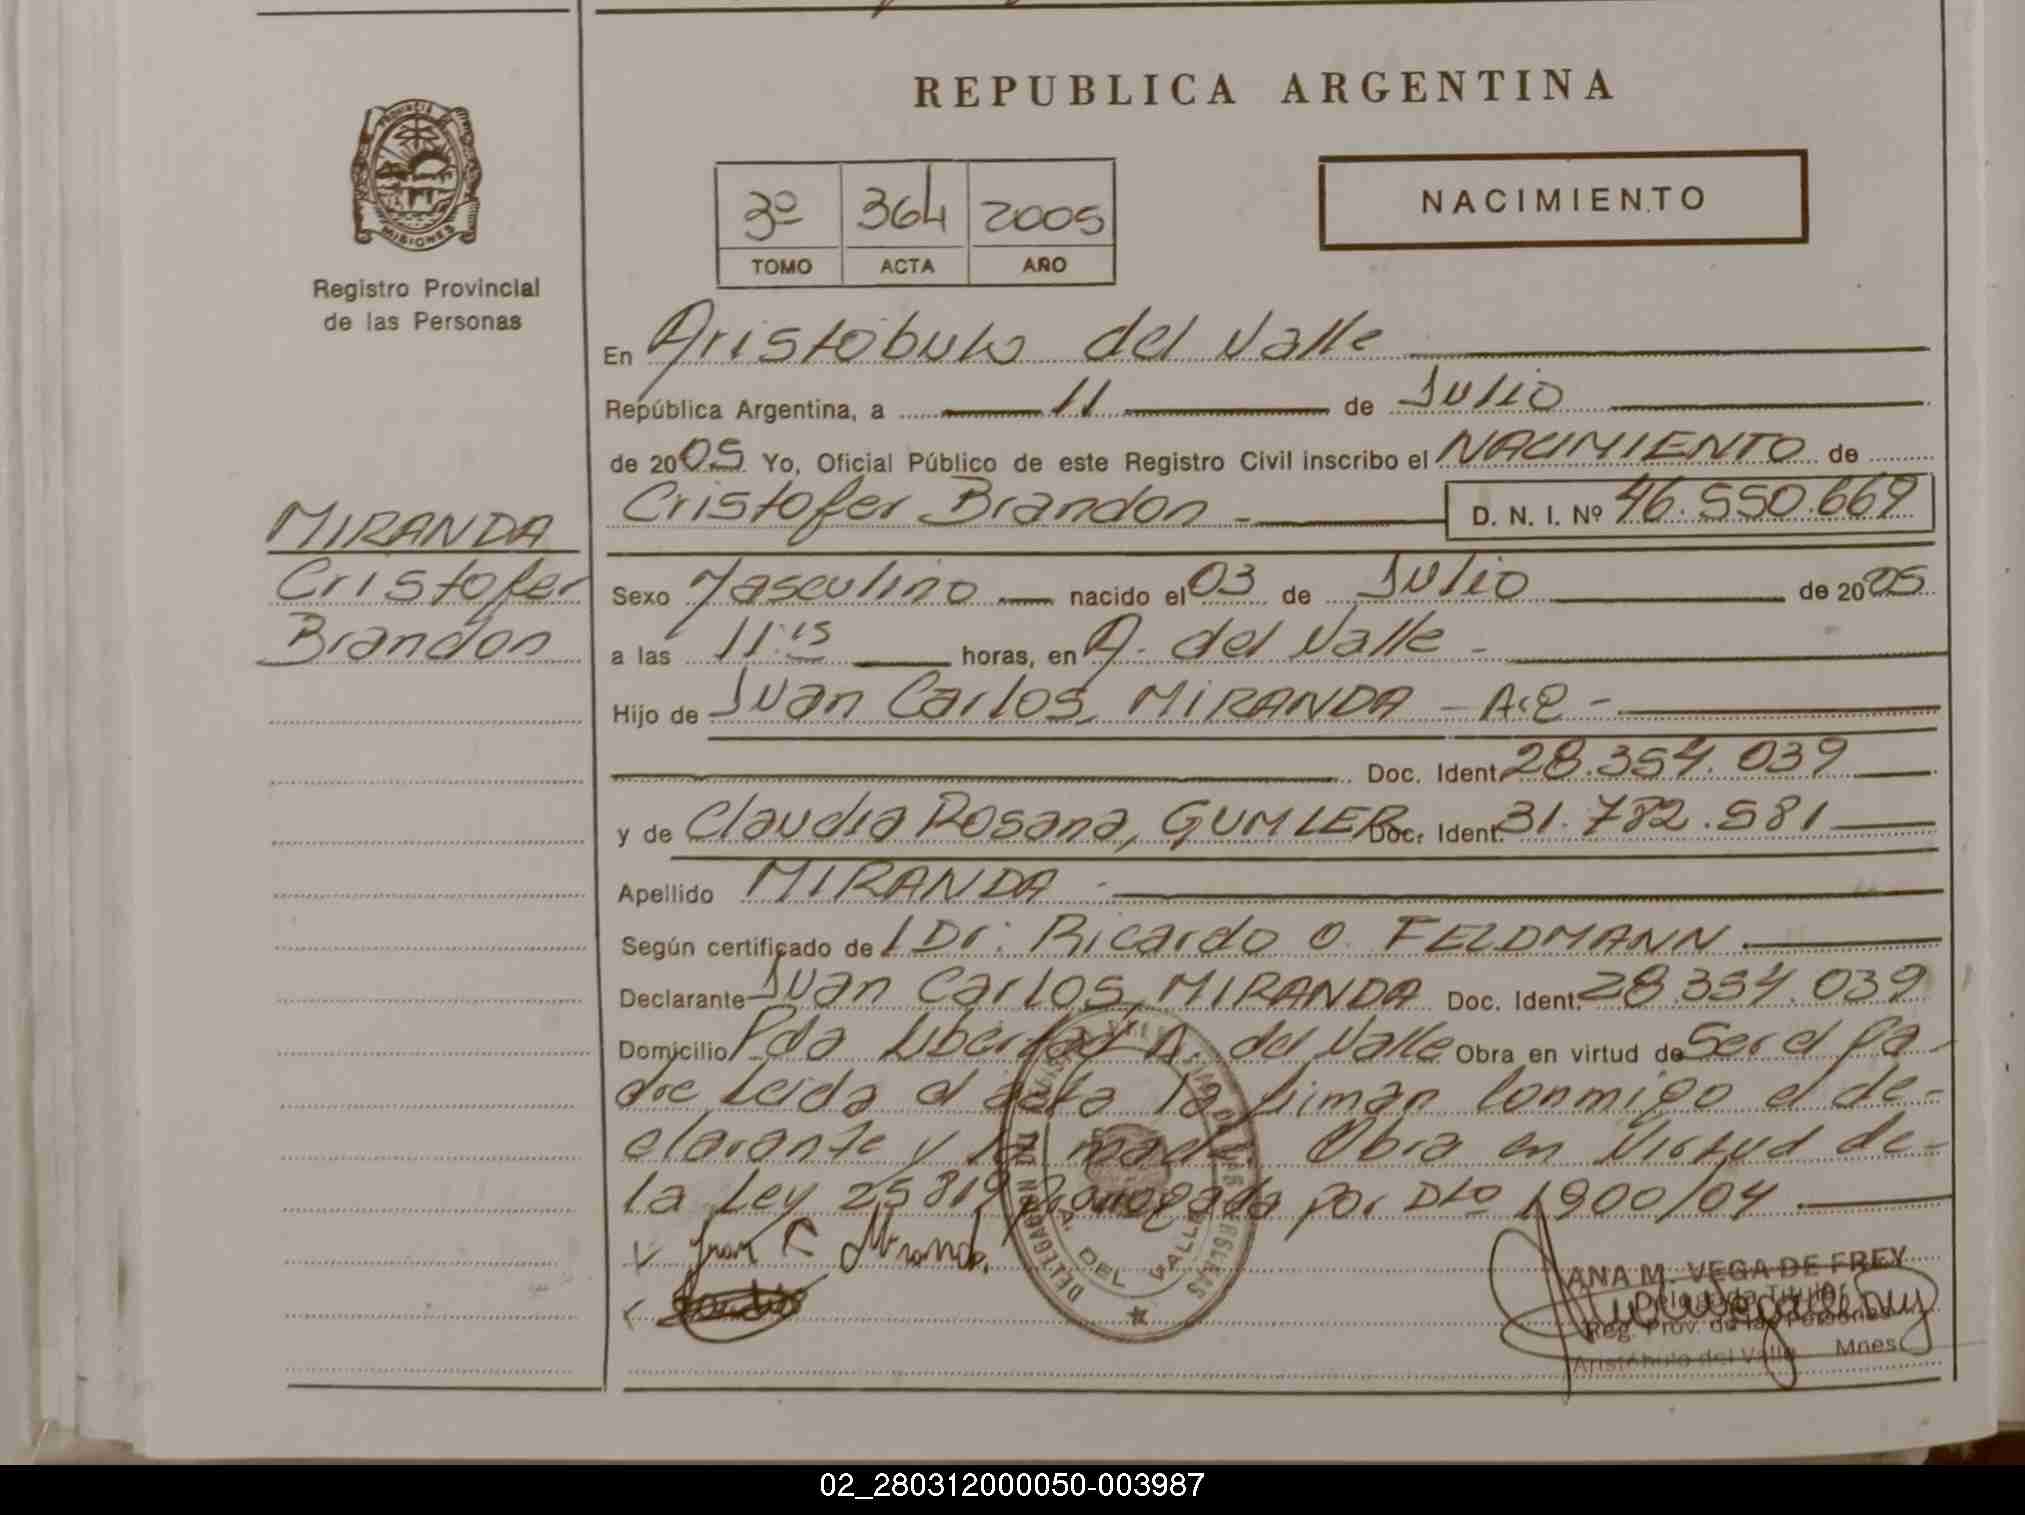 REPUBLICA ARGENTINA
PROVINCIA DE
MISIONES
Registro Provincial
de las Personas
3º 364 2005
TOMO ACTA AÑO
NACIMIENTO
En Aristóbulo del Valle
República Argentina, a 11 de Julio
de 2005 Yo, Oficial Público de este Registro Civil inscribo el NACIMIENTO de
Cristofer Brandon - D. N. I. Nº 46.550.669
MIRANDA
Cristofer
Brandon
Sexo Masculino nacido el 03 de Julio de 2005
a las 11:15 horas, en A. del Valle -
Hijo de Juan Carlos, MIRANDA - A.P -
Doc. Ident. 28.354.039
y de Claudia Rosana, GUMLER Doc. Ident. 31.782.581
Apellido MIRANDA -
Según certificado de l Dr: Ricardo O. FELDMANN
Declarante Juan Carlos, MIRANDA Doc. Ident. 28.354.039
Domicilio Pda Libertad A. del Valle Obra en virtud de Ser el Pa-
dre Leida el acta la firman conmigo el de-
clarante y la madre. Obra en Virtud de-
la Ley 25819 prorrogada por Dto 1900/04
Juan C Miranda.
A. DEL VALLE
ANA M. VEGA DE FREY
Delegada Titular
Reg. Prov. de las Personas
Aristóbulo del Valle Mnes
02_280312000050-003987